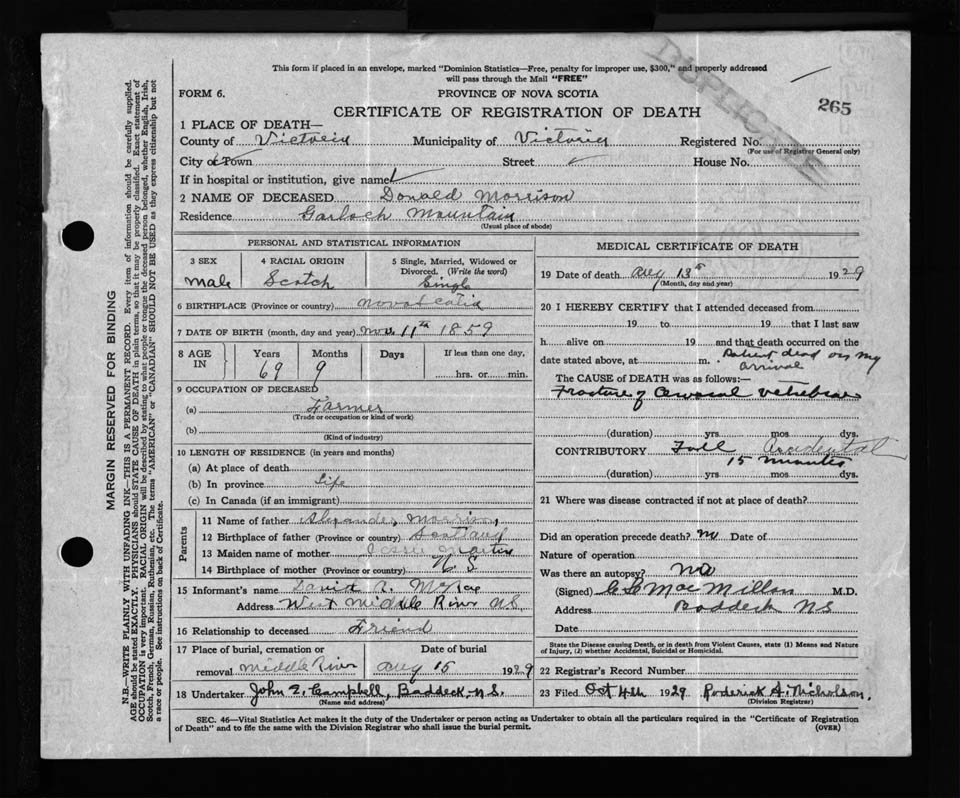 This form if placed in an envelope, marked "Dominion Statistics—Free, penalty for improper use, $300," and properly addressed
will pass through the Mail "FREE"
DUPLICATE
265
FORM 6.
PROVINCE OF NOVA SCOTIA
CERTIFICATE OF REGISTRATION OF DEATH
1 PLACE OF DEATH—
County of Victoria Municipality of Victoria Registered No.
(For use of Registrar General only)
City or Town Street House No.
If in hospital or institution, give name
2 NAME OF DECEASED Donald Morrison
Residence Garloch Mountain
(Usual place of abode)
PERSONAL AND STATISTICAL INFORMATION
3 SEX 4 RACIAL ORIGIN 5 Single, Married, Widowed or Divorced. (Write the word)
Male Scotch Single
6 BIRTHPLACE (Province or country) Nova Scotia
7 DATE OF BIRTH (month, day and year) Nov. 11th 1859
8 AGE IN Years Months Days If less than one day,
69 9 hrs. or min.
9 OCCUPATION OF DECEASED
(a) Farmer
(Trade or occupation or kind of work)
(b)
(Kind of industry)
10 LENGTH OF RESIDENCE (in years and months)
(a) At place of death
(b) In province Life
(c) In Canada (if an immigrant)
Parents
11 Name of father Alexander Morrison
12 Birthplace of father (Province or country) Scotland
13 Maiden name of mother Jessie Martin
14 Birthplace of mother (Province or country) N. S.
15 Informant's name David A. McRae
Address West Middle River NS
16 Relationship to deceased Friend
17 Place of burial, cremation or removal Date of burial
Middle River Aug 15 1929
18 Undertaker John E. Campbell, Baddeck N.S.
(Name and address)
MEDICAL CERTIFICATE OF DEATH
19 Date of death Aug 13th 1929
(Month, day and year)
20 I HEREBY CERTIFY that I attended deceased from
19 to 19 that I last saw
h alive on 19 and that death occurred on the
date stated above, at m. Patient dead on my arrival
The CAUSE OF DEATH was as follows:—
Fracture of Cervical vetebrae
(duration) yrs mos dys.
CONTRIBUTORY Fall Accidental
15 minutes
(duration) yrs. mos dys.
21 Where was disease contracted if not at place of death?
Did an operation precede death? Date of
Nature of operation
Was there an autopsy? No
(Signed) MacMillan M.D.
Address Baddeck NS
Date
State the Disease causing Death, or in death from Violent Causes, state (1) Means and Nature of Injury, (2) whether Accidental, Suicidal or Homicidal.
22 Registrar's Record Number
23 Filed Oct 4th 1929 Roderick A. Nicholson.
(Division Registrar)
SEC. 46—Vital Statistics Act makes it the duty of the Undertaker or person acting as Undertaker to obtain all the particulars required in the "Certificate of Registration
of Death" and to file the same with the Division Registrar who shall issue the burial permit.
(OVER)
MARGIN RESERVED FOR BINDING
N.B.—WRITE PLAINLY WITH UNFADING INK—THIS IS A PERMANENT RECORD. Every item of information should be carefully supplied.
AGE should be stated EXACTLY. PHYSICIANS should STATE CAUSE OF DEATH in plain terms, so that it may be properly classified. Exact statement of
OCCUPATION is very important. RACIAL ORIGIN will be described by stating to what people or tongue the deceased person belonged, whether English, Irish,
Scotch, French, German, Russian, Ruthenian, etc. The terms "AMERICAN" or "CANADIAN" SHOULD NOT BE USED as they express citizenship but not
a race or people. See instructions on back of Certificate.